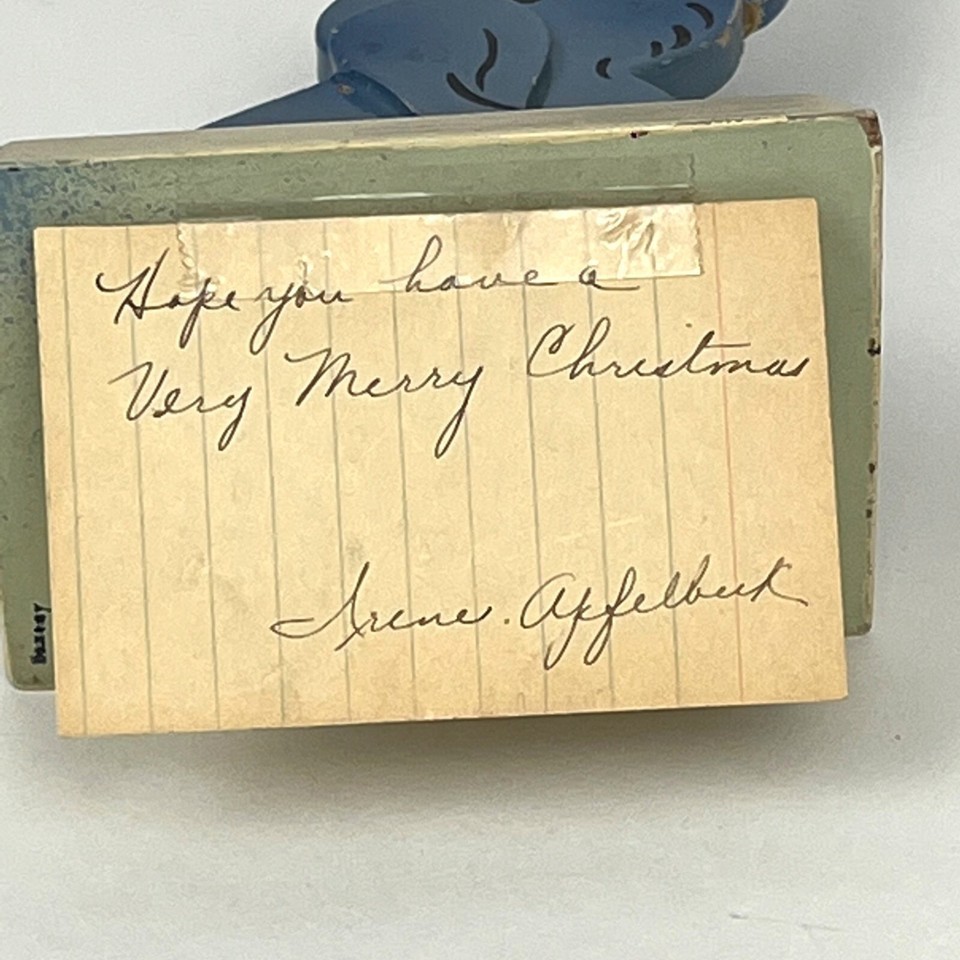 Hope you have a
Very Merry Christmas
Irene. Apfelbeck